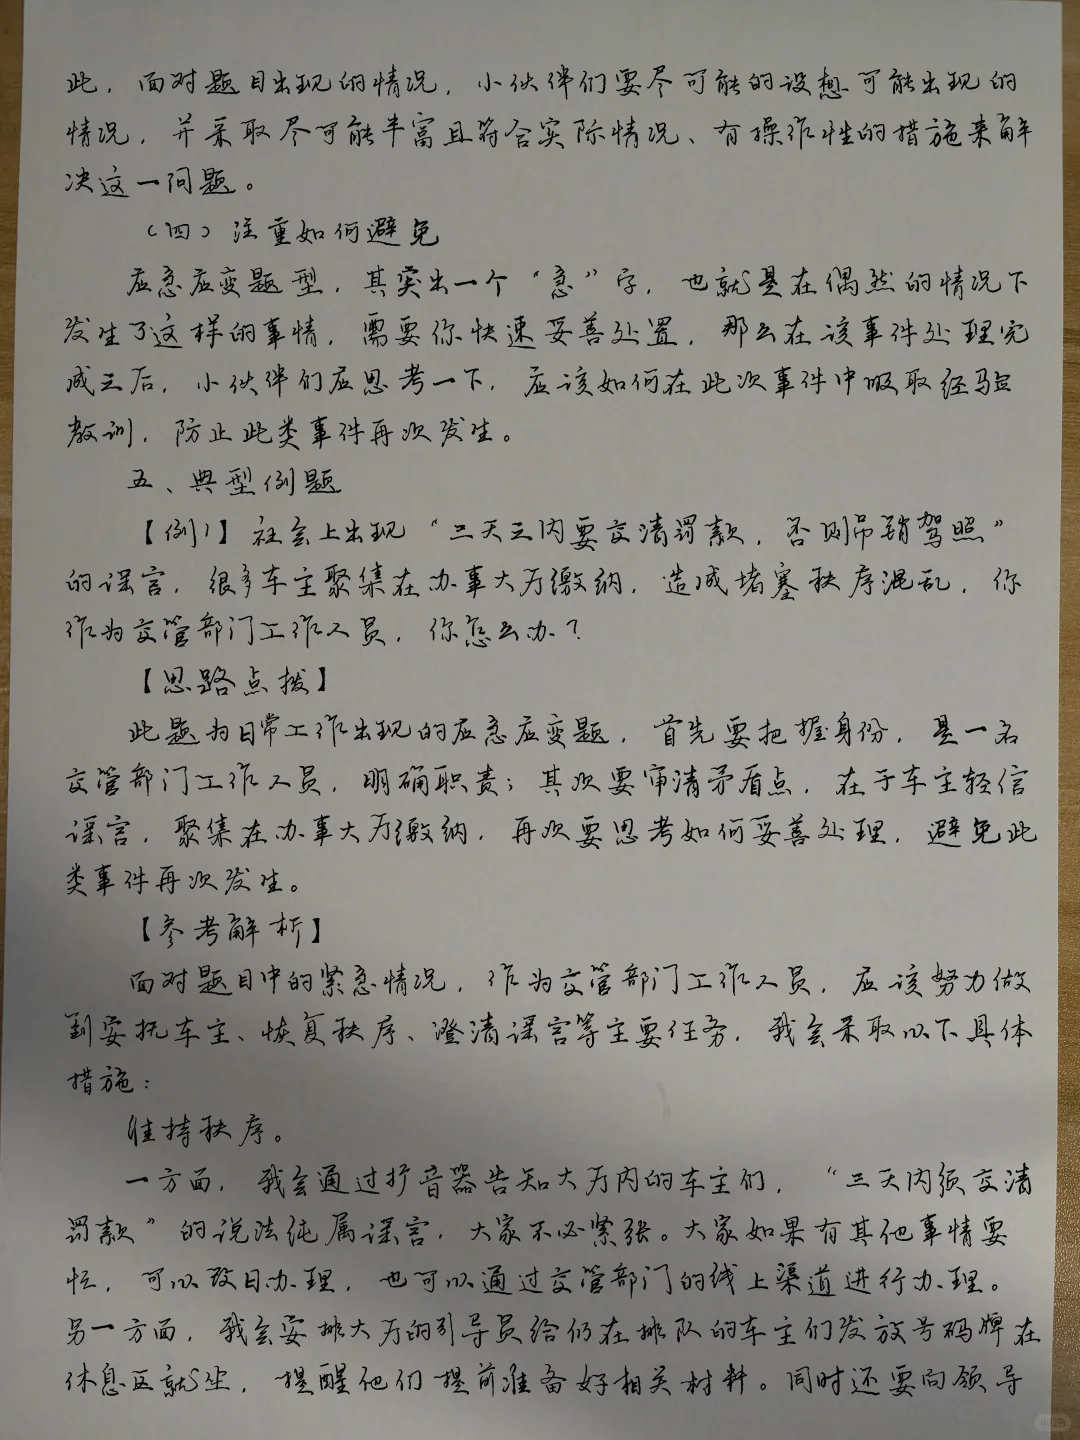 此，面对题目出现的情况，小伙伴们要尽可能的设想可能出现的
情况，并采取尽可能丰富且符合实际情况、有操作性的措施来解
决这一问题。
（四）注重如何避免
应急应变题型，其突出一个“急”字，也就是在偶然的情况下
发生了这样的事情，需要你快速妥善处置，那么在该事件处理完
成之后，小伙伴们应思考一下，应该如何在此次事件中吸取经验
教训，防止此类事件再次发生。
五、典型例题
【例1】社会上出现“三天之内要交清罚款，否则吊销驾照”
的谣言，很多车主聚集在办事大厅缴纳，造成堵塞秩序混乱，你
作为交管部门工作人员，你怎么办？
【思路点拨】
此题为日常工作出现的应急应变题，首先要把握身份，是一名
交管部门工作人员，明确职责；其次要审清矛盾点，在于车主轻信
谣言，聚集在办事大厅缴纳，再次要思考如何妥善处理，避免此
类事件再次发生。
【参考解析】
面对题目中的紧急情况，作为交管部门工作人员，应该努力做
到安抚车主、恢复秩序、澄清谣言等主要任务，我会采取以下具体
措施：
维持秩序。
一方面，我会通过扩音器告知大厅内的车主们，“三天内须交清
罚款”的说法纯属谣言，大家不必紧张。大家如果有其他事情要
忙，可以改日办理，也可以通过交管部门的线上渠道进行办理。
另一方面，我会安排大厅的引导员给仍在排队的车主们发放号码牌在
休息区就坐，提醒他们提前准备好相关材料。同时还要向领导
小红书